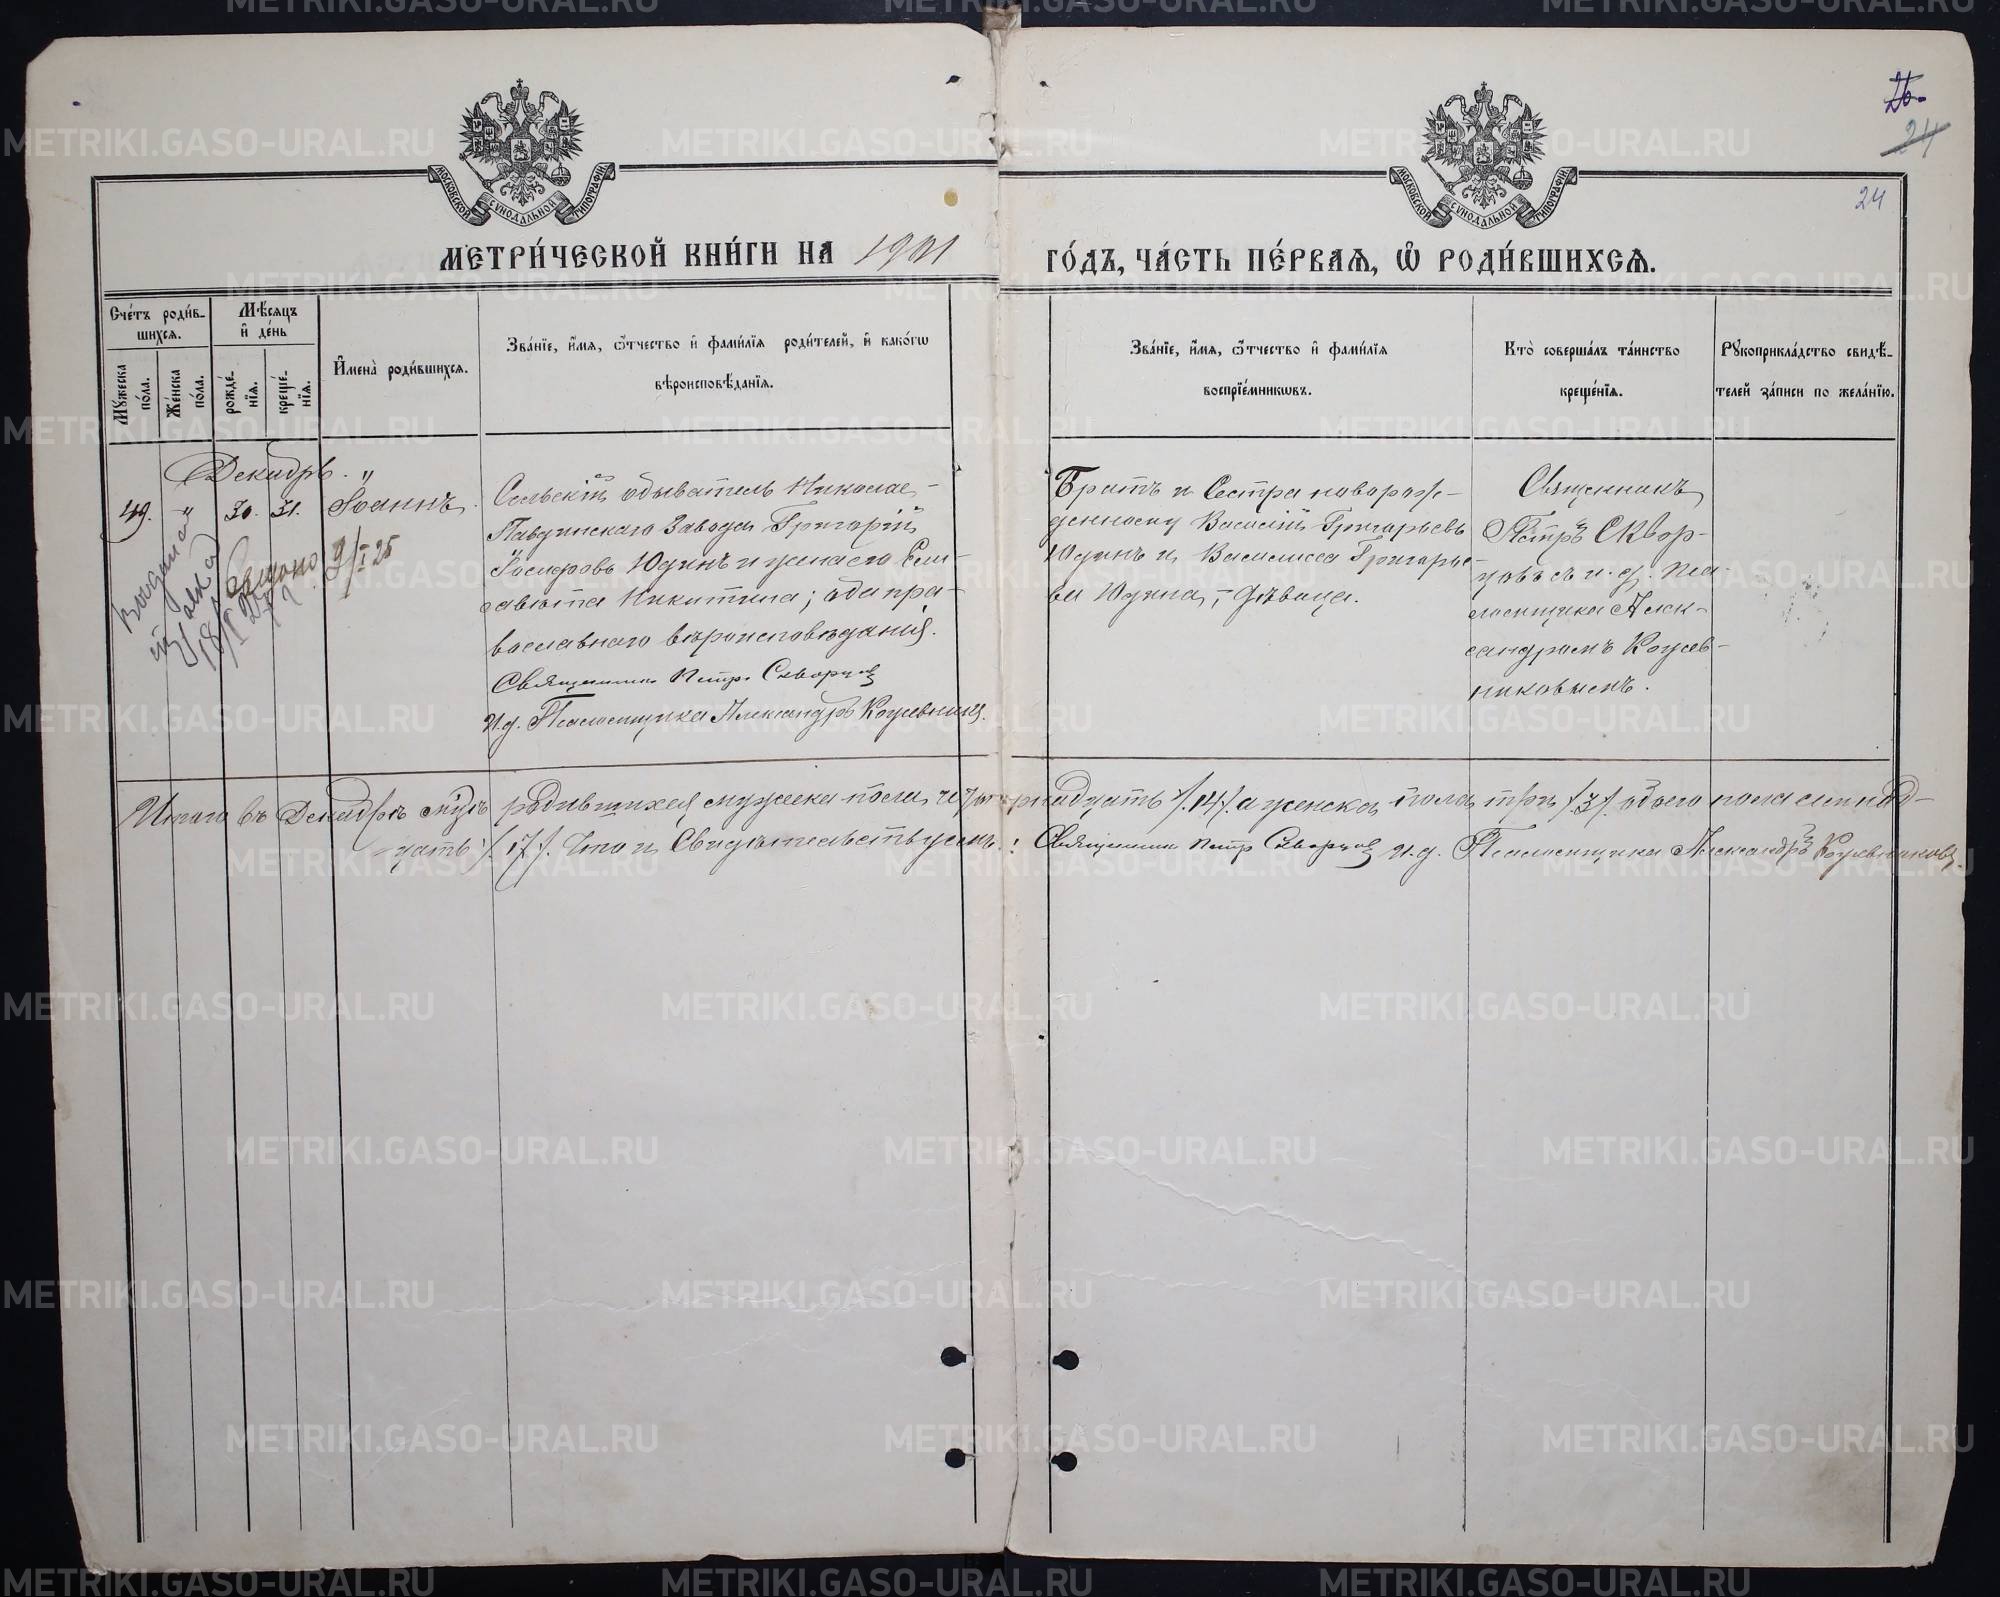 26.
24
24
МОСКОВСКОЙ СѴНОДАЛЬНОЙ ТИПОГРАФІИ
МОСКОВСКОЙ СѴНОДАЛЬНОЙ ТИПОГРАФІИ
МЕТРИ́ЧЕСКОЙ КНИ́ГИ НА 1901 ГО́ДЪ, ЧА́СТЬ ПЕ́РВАѦ, Ѡ҆ РОДИ́ВШИХСѦ.
Сче́тъ роди́в-
шихсѧ.
Мꙋ́жеска по́ла.
Же́нска по́ла.
Мѣ́сѧцъ и҆ де́нь
рожде́-нїѧ.
креще́-нїѧ.
И҆мена̀ роди́вшихсѧ.
Зва́нїе, и҆́мѧ, ѻ҆́тчество и҆ фами́лїѧ роди́телей, и҆ како́гѡ
вѣроисповѣ́данїѧ.
Зва́нїе, и҆́мѧ, ѻ҆́тчество и҆ фами́лїѧ
воспрїе́мникѡвъ.
Кто̀ соверша́лъ та́инство
креще́нїѧ.
Рꙋкоприкла́дство свидѣ́-
телей за́писи по жела́нїю.
Декабрь.
49. " 30. 31. Іоаннъ.
Сельскій обыватель Николае-
Павдинскаго Завода Григорій
Іосифовъ Юдинъ и жена его Ели-
завета Никитина; оба пра-
вославнаго вѣроисповѣданія.
Священникъ Петръ Скворцов
И.д. Псаломщика Александръ Кожевников.
Братъ и Сестра новорож-
денному Василій Григорьевъ
Юдинъ и Василисса Григорье-
ва Юдина, дѣвица.
Священникъ
Петръ Сквор-
цовъ съ и.д. пса-
ломщика Алек-
сандромъ Кожев-
никовымъ.
Выдана
9/I 25
18/I
Итого въ Декабрѣ м-цѣ родившихся мужеска пола четырнадцать /14/. а женска пола три /3/. обоего пола семнад-
цать /17/. Что и Свидѣтельствуемъ: Священникъ Петр Скворцов И.д. Псаломщика Александръ Кожевниковъ.
METRIKI.GASO-URAL.RU